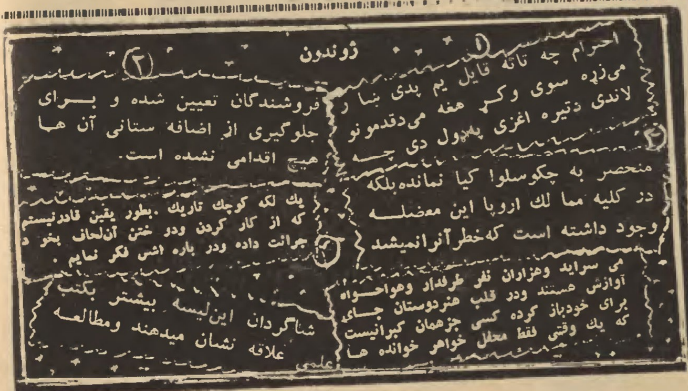 ژوندون
(۱)
احترام چه تاته قابل یم پدی ښار
می زړه سوی وکړ هغه می دقدمونو
لاندی دتیره اغزی په ول دی چه
(۲)
فروشندگان تعیین شده و برای
جلوگیری از اضافه ستانی آن ها
هیچ اقدامی نشده است.
(۳)
منحصر به چکوسلوا کیا نمانده بلکه
در کلیه مما لك اروپا این معضله
وجود داشته است که خطر آنرا نمیشد
یك لکه کوچك تاریك . بطور یقین قادر نیستم
که از کار کردن ودو ختن آن لحاف بخو د
جرائت داده ودر باره اش فکر نمایم .
می سراید وهزاران نفر طرفدار وهواخواه
آوازش هستند ودر قلب هنردوستان جای
برای خودباز کرده کسی جزهمان کبرانیست
که یك وقتی فقط محفل خواهر خوانده ها
شاگردان این لیسه بیشتر بکتب
علمی علاقه نشان میدهند ومطالعه